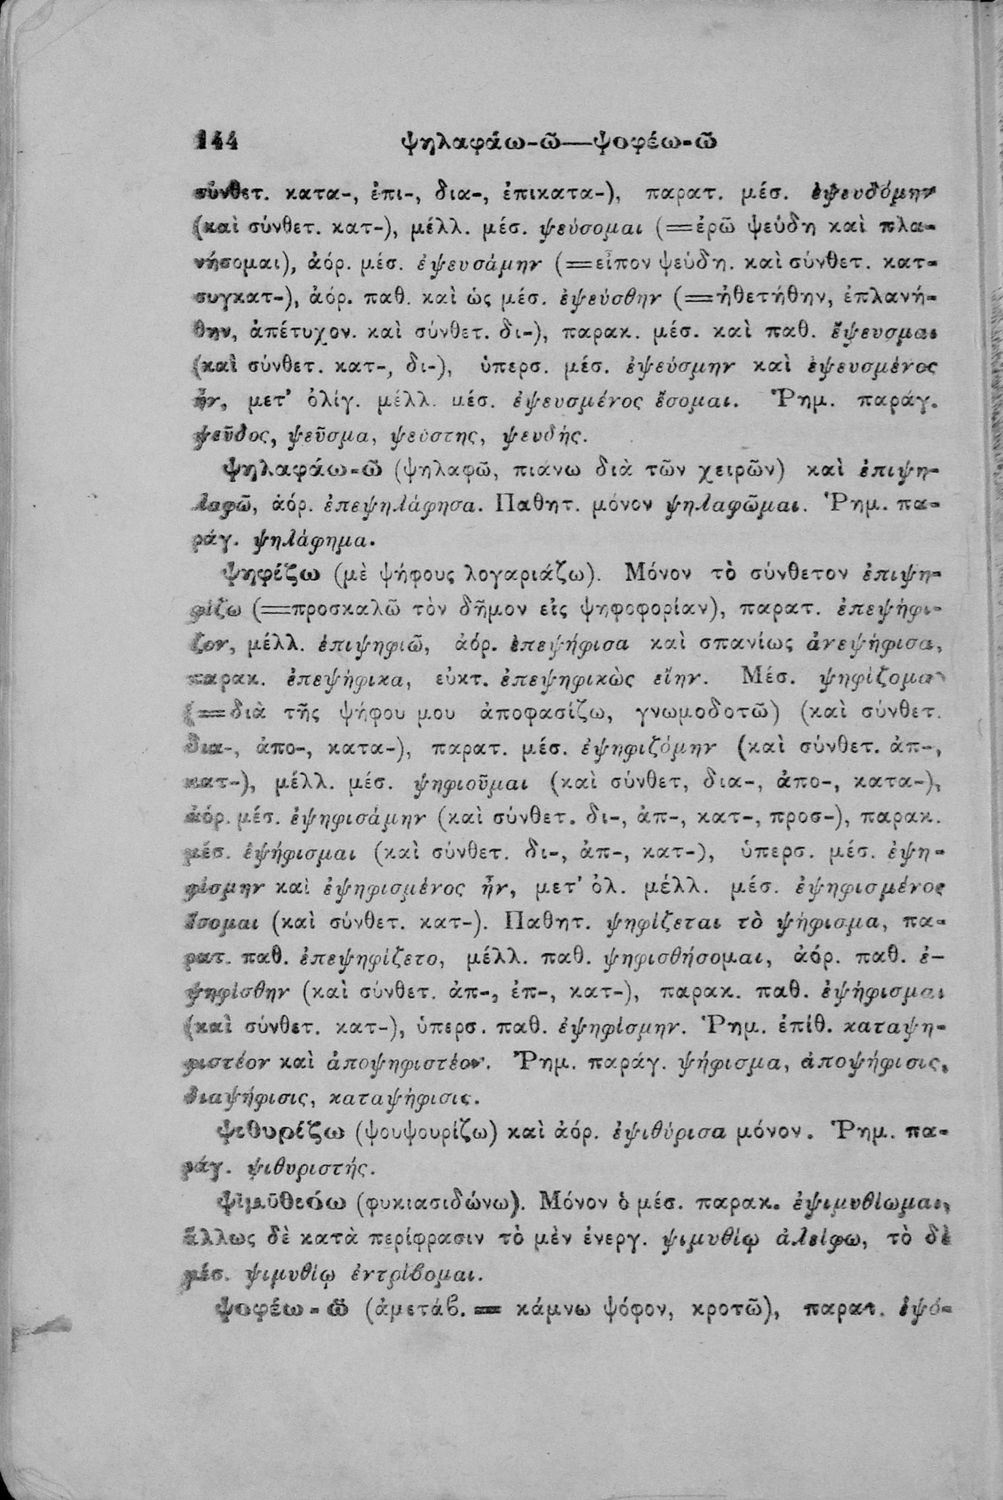 144 ψηλαφάω-ῶ—ψοφέω-ῶ
σύνθετ. κατα-, ἐπι-, δια-, ἐπικατα-), παρατ. μέσ. ἐψευδόμην
(καὶ σύνθετ. κατ-), μέλλ. μέσ. ψεύσομαι (=ἐρῶ ψεύδη καὶ πλα-
νήσομαι), ἀόρ. μέσ. ἐψευσάμην (=εἶπον ψεύδη. καὶ σύνθετ. κατ-
συγκατ-), ἀόρ. παθ. καὶ ὡς μέσ. ἐψεύσθην (=ἠθετήθην, ἐπλανή-
θην, ἀπέτυχον. καὶ σύνθετ. δι-), παρακ. μέσ. καὶ παθ. ἔψευσμαι
(καὶ σύνθετ. κατ-, δι-), ὑπερσ. μέσ. ἐψεύσμην καὶ ἐψευσμένος
ἦν, μετ' ὀλίγ. μέλλ. μέσ. ἐψευσμένος ἔσομαι. Ῥημ. παράγ.
ψεῦδος, ψεῦσμα, ψεύστης, ψευδής.
ψηλαφάω-ῶ (ψηλαφῶ, πιάνω διὰ τῶν χειρῶν) καὶ ἐπιψη-
λαφῶ, ἀόρ. ἐπεψηλάφησα. Παθητ. μόνον ψηλαφῶμαι. Ῥημ. πα-
ράγ. ψηλάφημα.
ψηφίζω (μὲ ψήφους λογαριάζω). Μόνον τὸ σύνθετον ἐπιψη-
φίζω (=προσκαλῶ τὸν δῆμον εἰς ψηφοφορίαν), παρατ. ἐπεψήφι-
ζον, μέλλ. ἐπιψηφιῶ, ἀόρ. ἐπεψήφισα καὶ σπανίως ἀνεψήφισα,
παρακ. ἐπεψήφικα, εὐκτ. ἐπεψηφικὼς εἴην. Μέσ. ψηφίζομαι
(=διὰ τῆς ψήφου μου ἀποφασίζω, γνωμοδοτῶ) (καὶ σύνθετ.
δια-, ἀπο-, κατα-), παρατ. μέσ. ἐψηφιζόμην (καὶ σύνθετ. ἀπ-,
κατ-), μέλλ. μέσ. ψηφιοῦμαι (καὶ σύνθετ, δια-, ἀπο-, κατα-),
ἀόρ. μέσ. ἐψηφισάμην (καὶ σύνθετ. δι-, ἀπ-, κατ-, προσ-), παρακ.
μέσ. ἐψήφισμαι (καὶ σύνθετ. δι-, ἀπ-, κατ-), ὑπερσ. μέσ. ἐψη-
φίσμην καὶ ἐψηφισμένος ἦν, μετ' ὀλ. μέλλ. μέσ. ἐψηφισμένος
ἔσομαι (καὶ σύνθετ. κατ-). Παθητ. ψηφίζεται τὸ ψήφισμα, πα-
ρατ. παθ. ἐπεψηφίζετο, μέλλ. παθ. ψηφισθήσομαι, ἀόρ. παθ. ἐ-
ψηφίσθην (καὶ σύνθετ. ἀπ-, ἐπ-, κατ-), παρακ. παθ. ἐψήφισμαι
(καὶ σύνθετ. κατ-), ὑπερσ. παθ. ἐψηφίσμην. Ῥημ. ἐπίθ. καταψη-
φιστέον καὶ ἀποψηφιστέον. Ῥημ. παράγ. ψήφισμα, ἀποψήφισις,
διαψήφισις, καταψήφισις.
ψιθυρίζω (ψουψουρίζω) καὶ ἀόρ. ἐψιθύρισα μόνον. Ῥημ. πα-
ράγ. ψιθυριστής.
ψῐμῡθιόω (φυκιασιδώνω). Μόνον ὁ μέσ. παρακ. ἐψιμυθίωμαι,
ἄλλως δὲ κατὰ περίφρασιν τὸ μὲν ἐνεργ. ψιμυθίῳ ἀλείφω, τὸ δὲ
μέσ. ψιμυθίῳ ἐντρίβομαι.
ψοφέω-ῶ (ἀμετάβ. = κάμνω ψόφον, κροτῶ), παρατ. ἐψό-